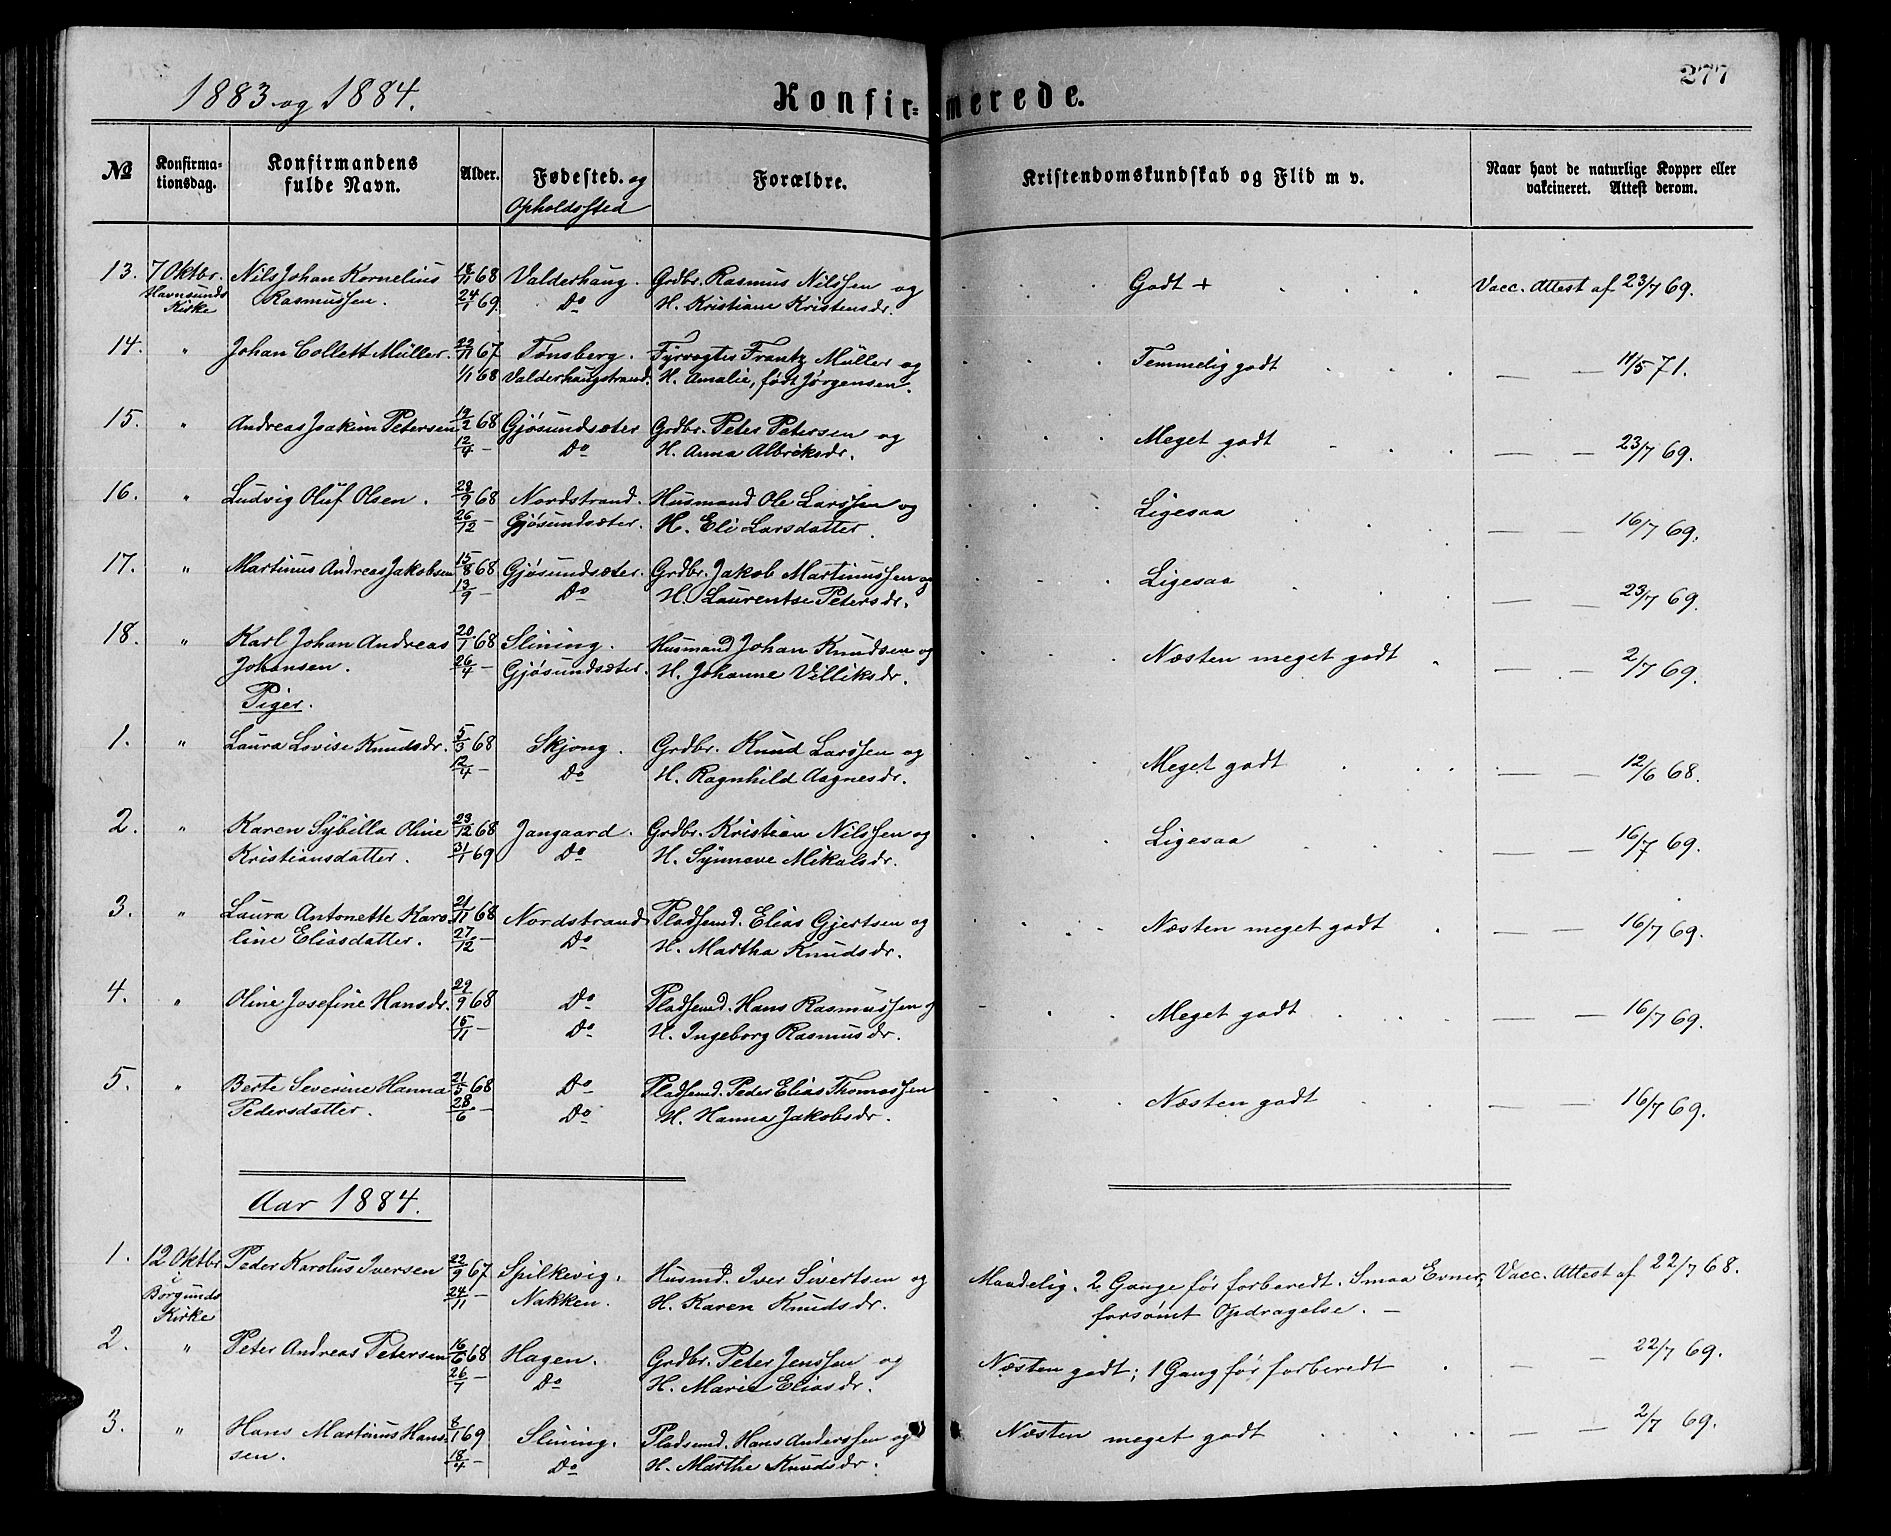 1883 og 1884.
Konfirmerede.
277
No
Konfirma-
tionsdag.
Konfirmandens
fulde Navn.
Alder.
Fødested. og
Opholdssted
Forældre.
Kristendomskundskab og Flid m v.
Naar havt de naturlige Kopper eller
vakcineret. Attest derom.
13. 7 Oktbr. Nils Johan Kornelius 18/11 68 Valderhaug. Grdbr. Rasmus Nilssen og Godt + Vacc. Attest af 23/7 69.
Havnsunds Kirke Rasmussen. 24/1 69. Do H. Kristiane Kristensdr.
14. " Johan Collett Müller. 22/11 67 Tønsberg. Fyrvogter Frantz Müller og Temmelig godt — — 11/5 71.
1/1 68 Valderhaugstrand. H. Amalie, født Jørgensen.
15. " Andreas Joakim Petersen 19/2 68 Gjøsundsæter Grdbr. Peter Petersen og Meget godt — — 23/7 69.
12/4 — Do H. Anna Albriksdr.
16. " Ludvig Oluf Olsen. 28/9 68 Nordstrand. Husmand Ole Larssen og Ligesaa — — 16/7 69.
26/12 — Gjøsundsæter. H. Eli Larsdatter.
17. " Martinus Andreas Jakobsen 15/8 68 Gjøsundsæter. Grdbr. Jakob Martinussen og Ligesaa — — 23/7 69.
13/9 — Do H. Laurentse Petersdr.
18. " Karl Johan Andreas 20/1 68 Slining. Husmand Johan Knudsen og Næsten meget godt — — 2/7 69.
Johansen. 26/4 — Gjøsundsæter. H. Johanne Villiksdr.
Piger.
1. " Laura Lovise Knudsdr. 5/3 68 Skjong. Grdbr. Knud Larssen og Meget godt — — 12/6 68.
12/4 — Do H. Ragnhild Aagnesdr.
2. " Karen Sybilla Oline 23/12 68 Jangaard. Grdbr. Kristian Nilssen og Ligesaa — — 16/7 69.
Kristiansdatter. 31/1 69 Do H. Synneve Mikalsdr.
3. " Laura Antonette Karo- 21/11 68 Nordstrand Pladsmd. Elias Gjertsen og Næsten meget godt — — 16/7 69.
line Eliasdatter. 27/12 — Do H. Martha Knudsdr.
4. " Oline Josefine Hansdr. 22/9 68 Do Pladsemd. Hans Rasmussen og Meget godt — — 16/7 69.
15/11 — Do H. Ingeborg Rasmusdr.
5. " Berte Severine Hanna 21/5 68 Do Pladsemd. Peder Elias Thomassen Næsten godt — — 16/7 69.
Pedersdatter. 28/6 — Do H. Hanna Jakobsdr.
Aar 1884.
1. 12 Oktbr Peder Karolus Iversen 22/9 67 Spilkevig. Husmd. Iver Sivertsen og Maadelig. 2 Gange før forberedt. Smaa Evner, Vacc. Attest af 22/7 68.
i Borgunds Kirke 24/11 — Nakken. H. Karen Knudsdr. forsømt Opdragelse. —
2. " Peter Andreas Petersen 16/6 68 Hagen. Grdbr. Peter Jenssen og Næsten godt; 1 Gang før forberedt — — 22/7 69.
26/7 — Do H. Marie Eliasdr.
3. " Hans Martinus Hans- 8/1 69 Slining. Pladsemd. Hans Anderssen og Næsten meget godt — — 2/7 69.
sen. 18/4 — Do H. Marthe Knudsdr.